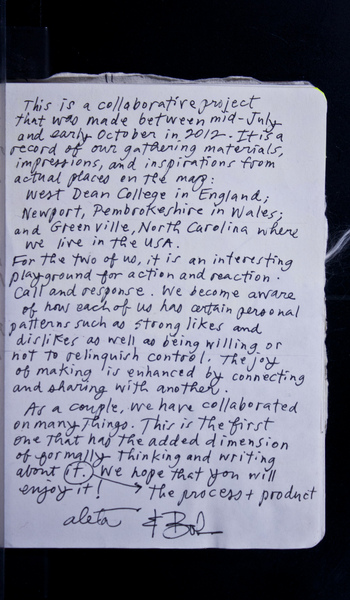 This is a collaborative project
that was made between mid-July
and early October in 2012. It is a
record of our gathering materials,
impressions, and inspirations from
actual places on the map:
West Dean College in England;
Newport, Pembrokeshire in Wales;
and Greenville, North Carolina where
we live in the USA.
For the two of us, it is an interesting
playground for action and reaction.
Call and response. We become aware
of how each of us has certain personal
patterns such as strong likes and
dislikes as well as being willing or
not to relinquish control. The joy
of making is enhanced by connecting
and sharing with another.
As a couple, we have collaborated
on many things. This is the first
one that has the added dimension
of formally thinking and writing
about it. We hope that you will
enjoy it! → the process + product
aleta & Bob